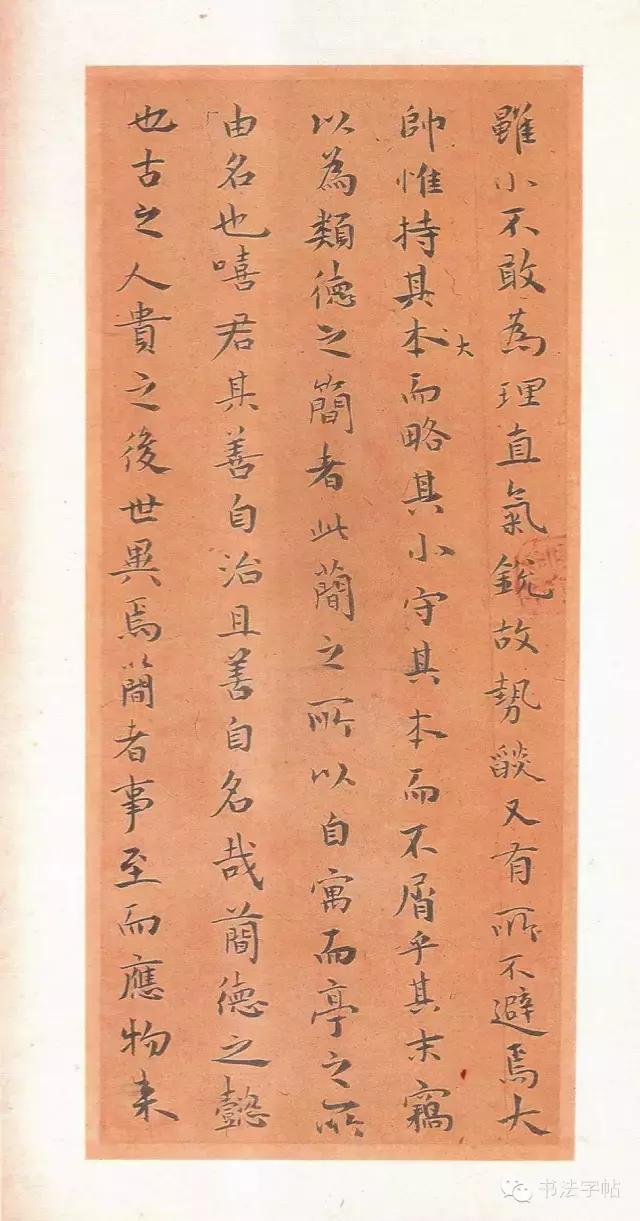 雖小不敢為理直氣銳故勢燄又有所不避焉大
帥惟持其本大而略其小守其本而不屑乎其末竊
以為類德之簡者此簡之所以自寓而亭之所
由名也嘻君其善自治且善自名哉簡德之懿
也古之人貴之後世異焉簡者事至而應物来
书法字帖